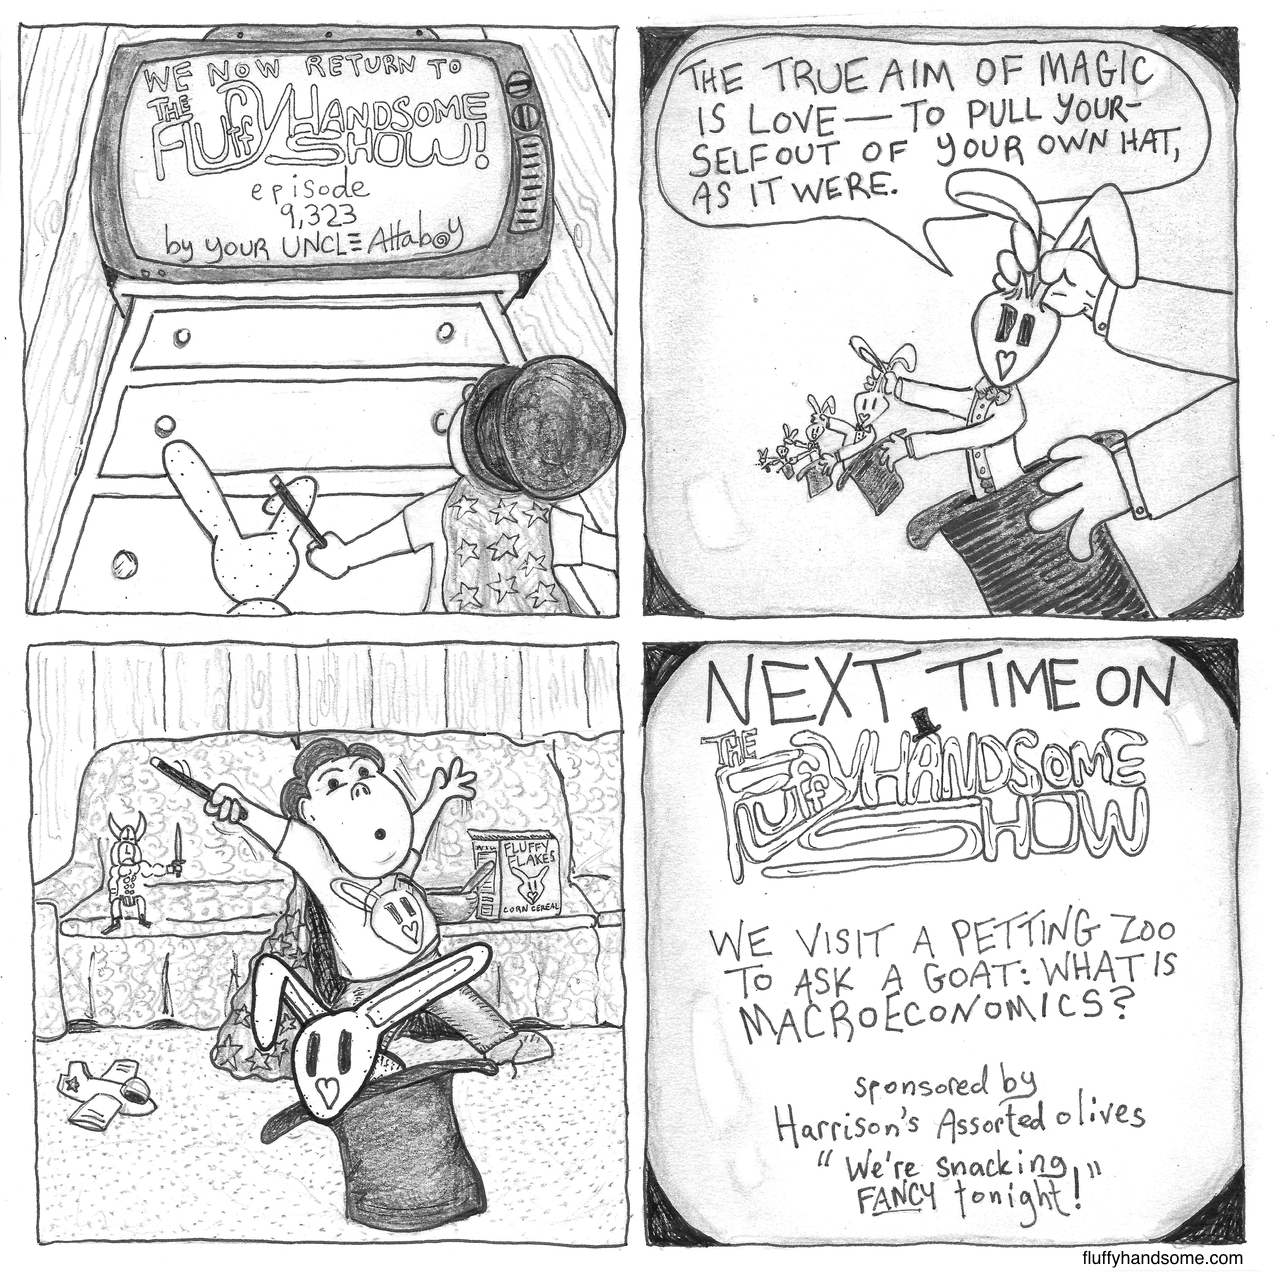 WE NOW RETURN TO
THE
FLUFFYHANDSOME
SHOW!
episode
9,323
by YOUR UNCLE Attab@y
THE TRUE AIM OF MAGIC
IS LOVE — TO PULL YOUR-
SELF OUT OF YOUR OWN HAT,
AS IT WERE.
FLUFFY
FLAKES
CORN CEREAL
NEXT TIME ON
THE
FLUFFYHANDSOME
SHOW
WE VISIT A PETTING ZOO
TO ASK A GOAT: WHAT IS
MACROECONOMICS?
sponsored by
Harrison's Assorted olives
"We're snacking
FANCY tonight!"
fluffyhandsome.com